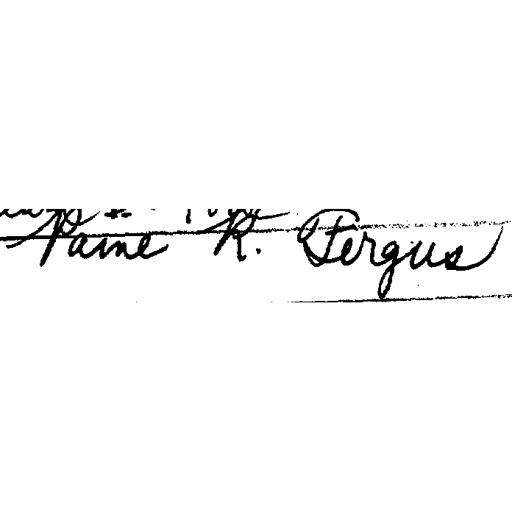 Paine R. Fergus